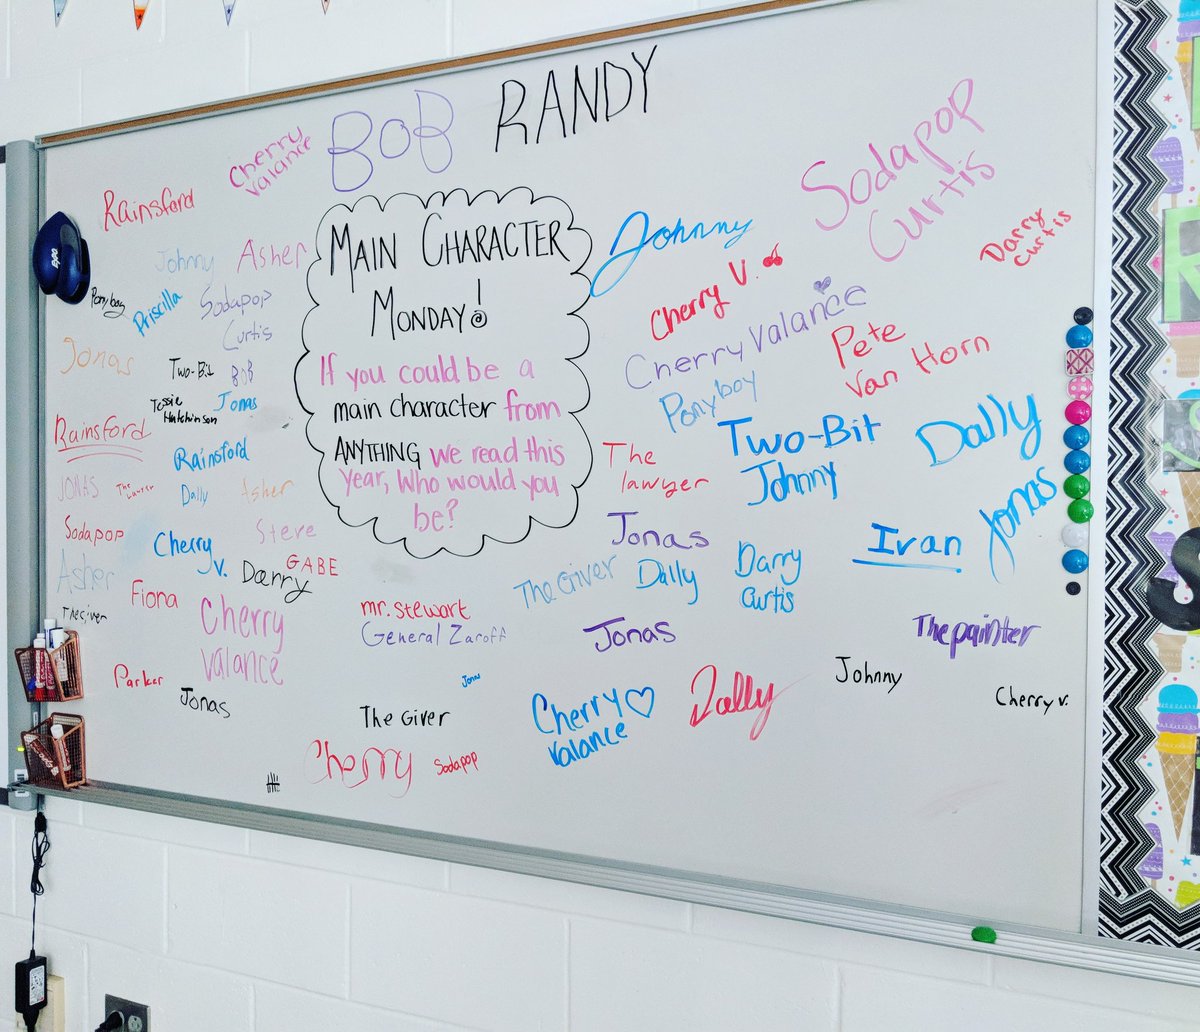 BOB
RANDY
Cherry
Valance
Rainsford
Johnny
Asher
Ponyboy
Priscilla
Sodapop
Curtis
MAIN CHARACTER
MONDAY!
If you could be a
main character from
ANYTHING we read this
year, who would you
be?
Johnny
Sodapop
Curtis
Darry
Curtis
Cherry V.
Cherry Valance
Pete
Van Horn
Ponyboy
Jonas
Two-Bit
BOB
Tessie
Hutchinson
Jonas
Rainsford
Rainsford
JONAS
The Lawyer
Dally
Asher
Two-Bit
Johnny
Dally
The
lawyer
Sodapop
Cherry
V.
Steve
Asher
Darry
GABE
Fiona
The Giver
Cherry
Valance
mr. stewart
General Zaroff
Jonas
The Giver
Dally
Darry
Curtis
Ivan
Jonas
Jonas
The painter
Parker
Jonas
Jonas
The Giver
Cherry
Valance
Dally
Johnny
Cherry V.
Cherry
Sodapop
EXPO